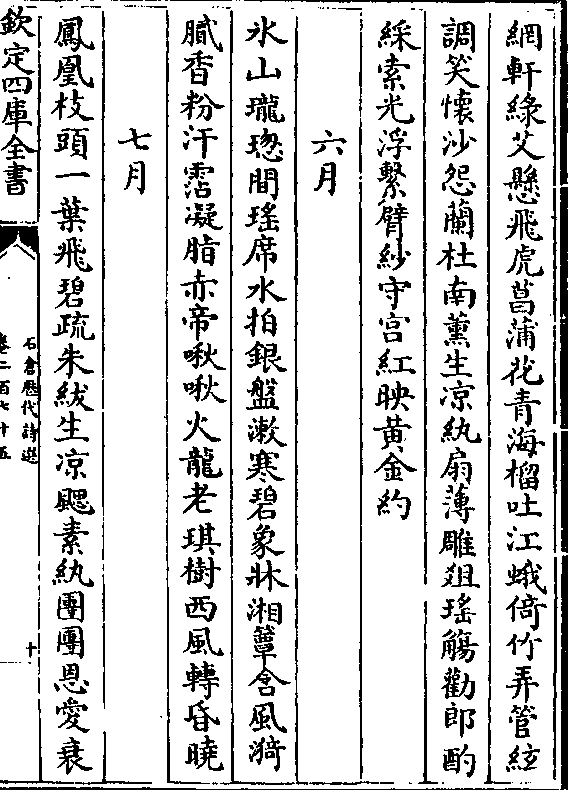 網軒緑艾懸飛虎菖蒲花青海榴吐江蛾倚竹弄管絃
調笑懐沙怨蘭杜南薰生凉紈扇薄雕俎瑤觴勸郎酌
綵索光浮繫臂紗守宫紅映黄金約
六月
氷山瓏璁間瑤席水拍銀盤漱寒碧象牀湘簟含風漪
膩香粉汗霑凝脂赤帝啾啾火龍老琪樹西風轉昏曉
七月
鳳凰枝頭一葉飛碧疏朱紱生凉颸素紈團團恩愛衰
欽定四庫全書
石倉歴代詩選
卷二百七十五
十